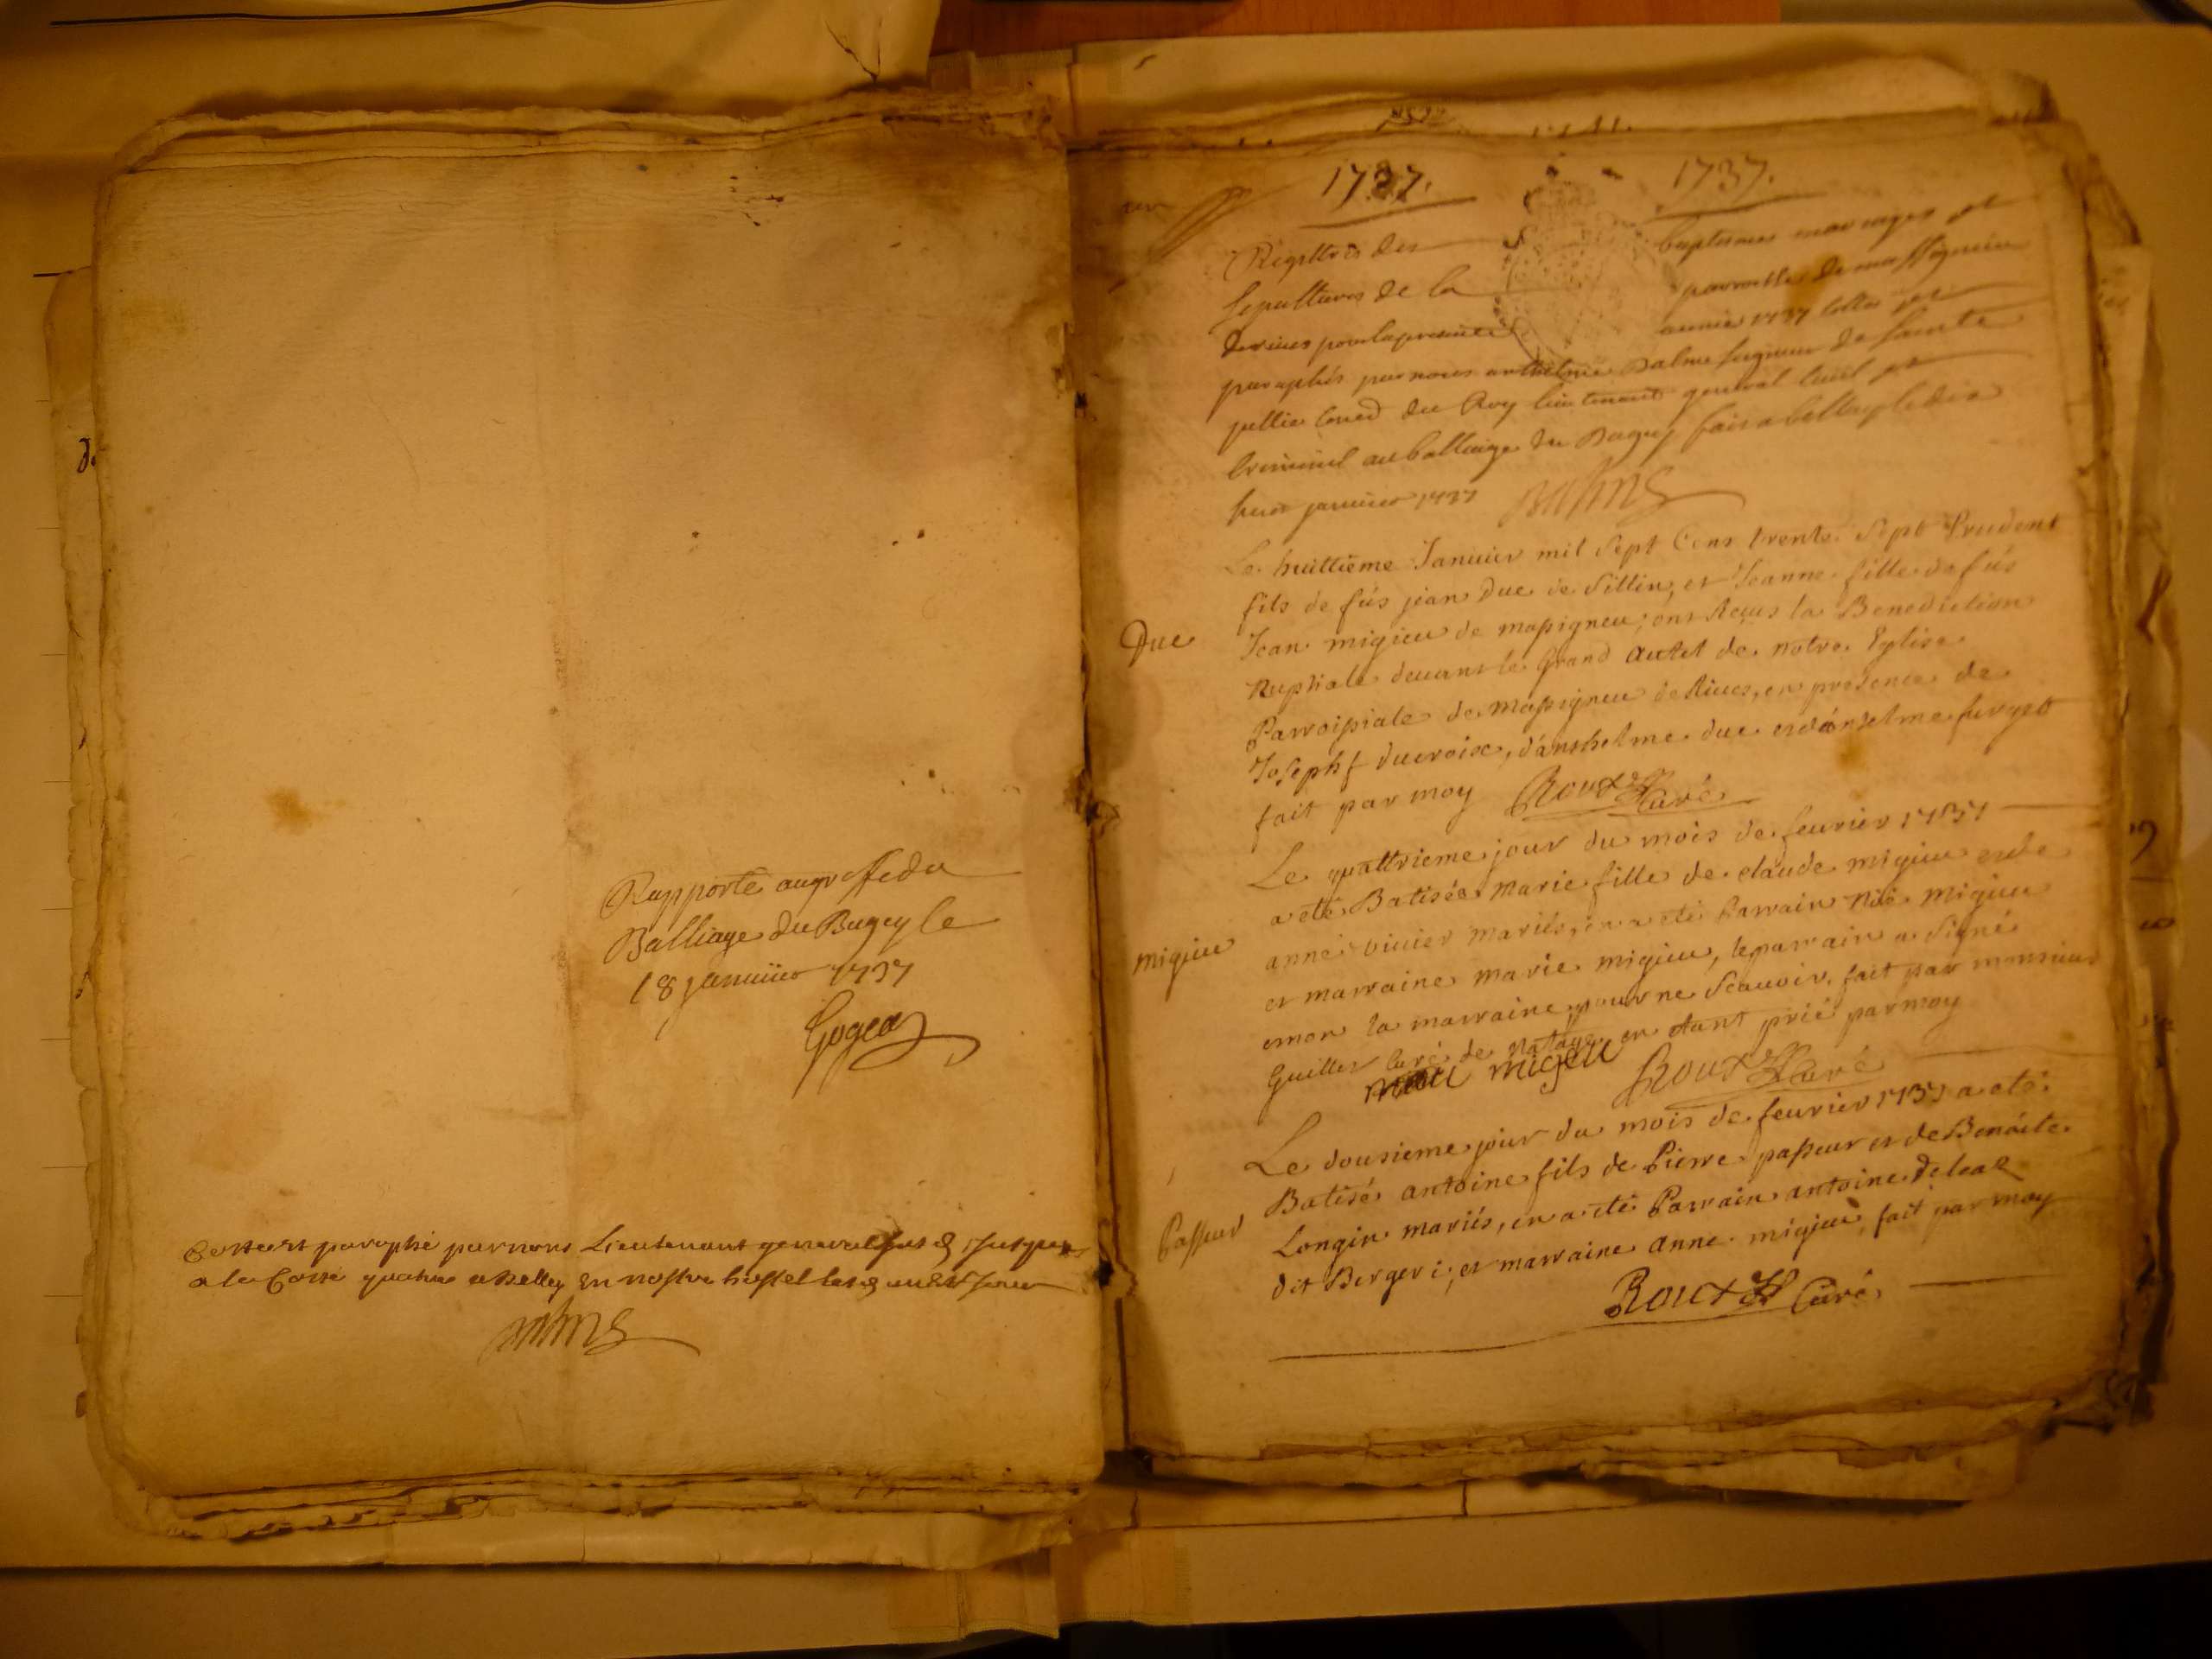 Rapporté au greffe du
Balliage du Bugey le
18 januier 1737
Gogea
paraphé par nous Lieutenant general
a la Cotte quatre a Belley en nostre hostel
1737. 1737.
Registres des baptemes mariages et
sepultures de la parroisse de massigneu
de rives pour la presente année 1737 cottés et
paraphés par nous anthelme Balme seigneur de sainte
jullie Coner du Roy lieutenant general civil et
criminel au balliage du Bugey fait a belley le dix
januier 1737 Balme
Le huittieme Januier mil sept Cens trente sept Prudent
fils de fus jean Duc de Sillin, et Jeanne fille de fus
Duc
Jean migieu de massigneu, ont Reçus la Benediction
Nuptiale devant le Grand autel de notre Eglise
Parroissiale de massigneu de Rives, en presence de
Joseph ducroix, d'anthelme duc et d'anselme furget
fait par moy Roux Curé
Le quattrieme jour du mois de feurier 1737
a eté Batisée marie fille de claude migieu et de
migieu
anne vivier mariés, en a eté Parrain Noé migieu
et marraine marie migieu, le parrain a signé
et non la marraine pour ne scauoir, fait par monsieur
Guillet Curé de Nattage en etant prié par moy
migeu Roux Curé
Le dousieme jour du mois de feurier 1737 a eté
Batisé antoine fils de Pierre passeur et de Benoite
Passeur
Longin mariés, en a eté Parrain antoine
dit Berger; et marraine anne migieu, fait par moy
Roux Curé